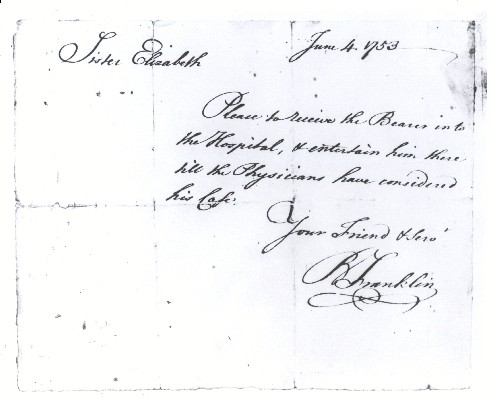 Sister Elizabeth June 4. 1753
Please to receive the Bearer into
the Hospital, & entertain him there
till the Physicians have considered
his Case.
Your Friend & Serv^t
B Franklin